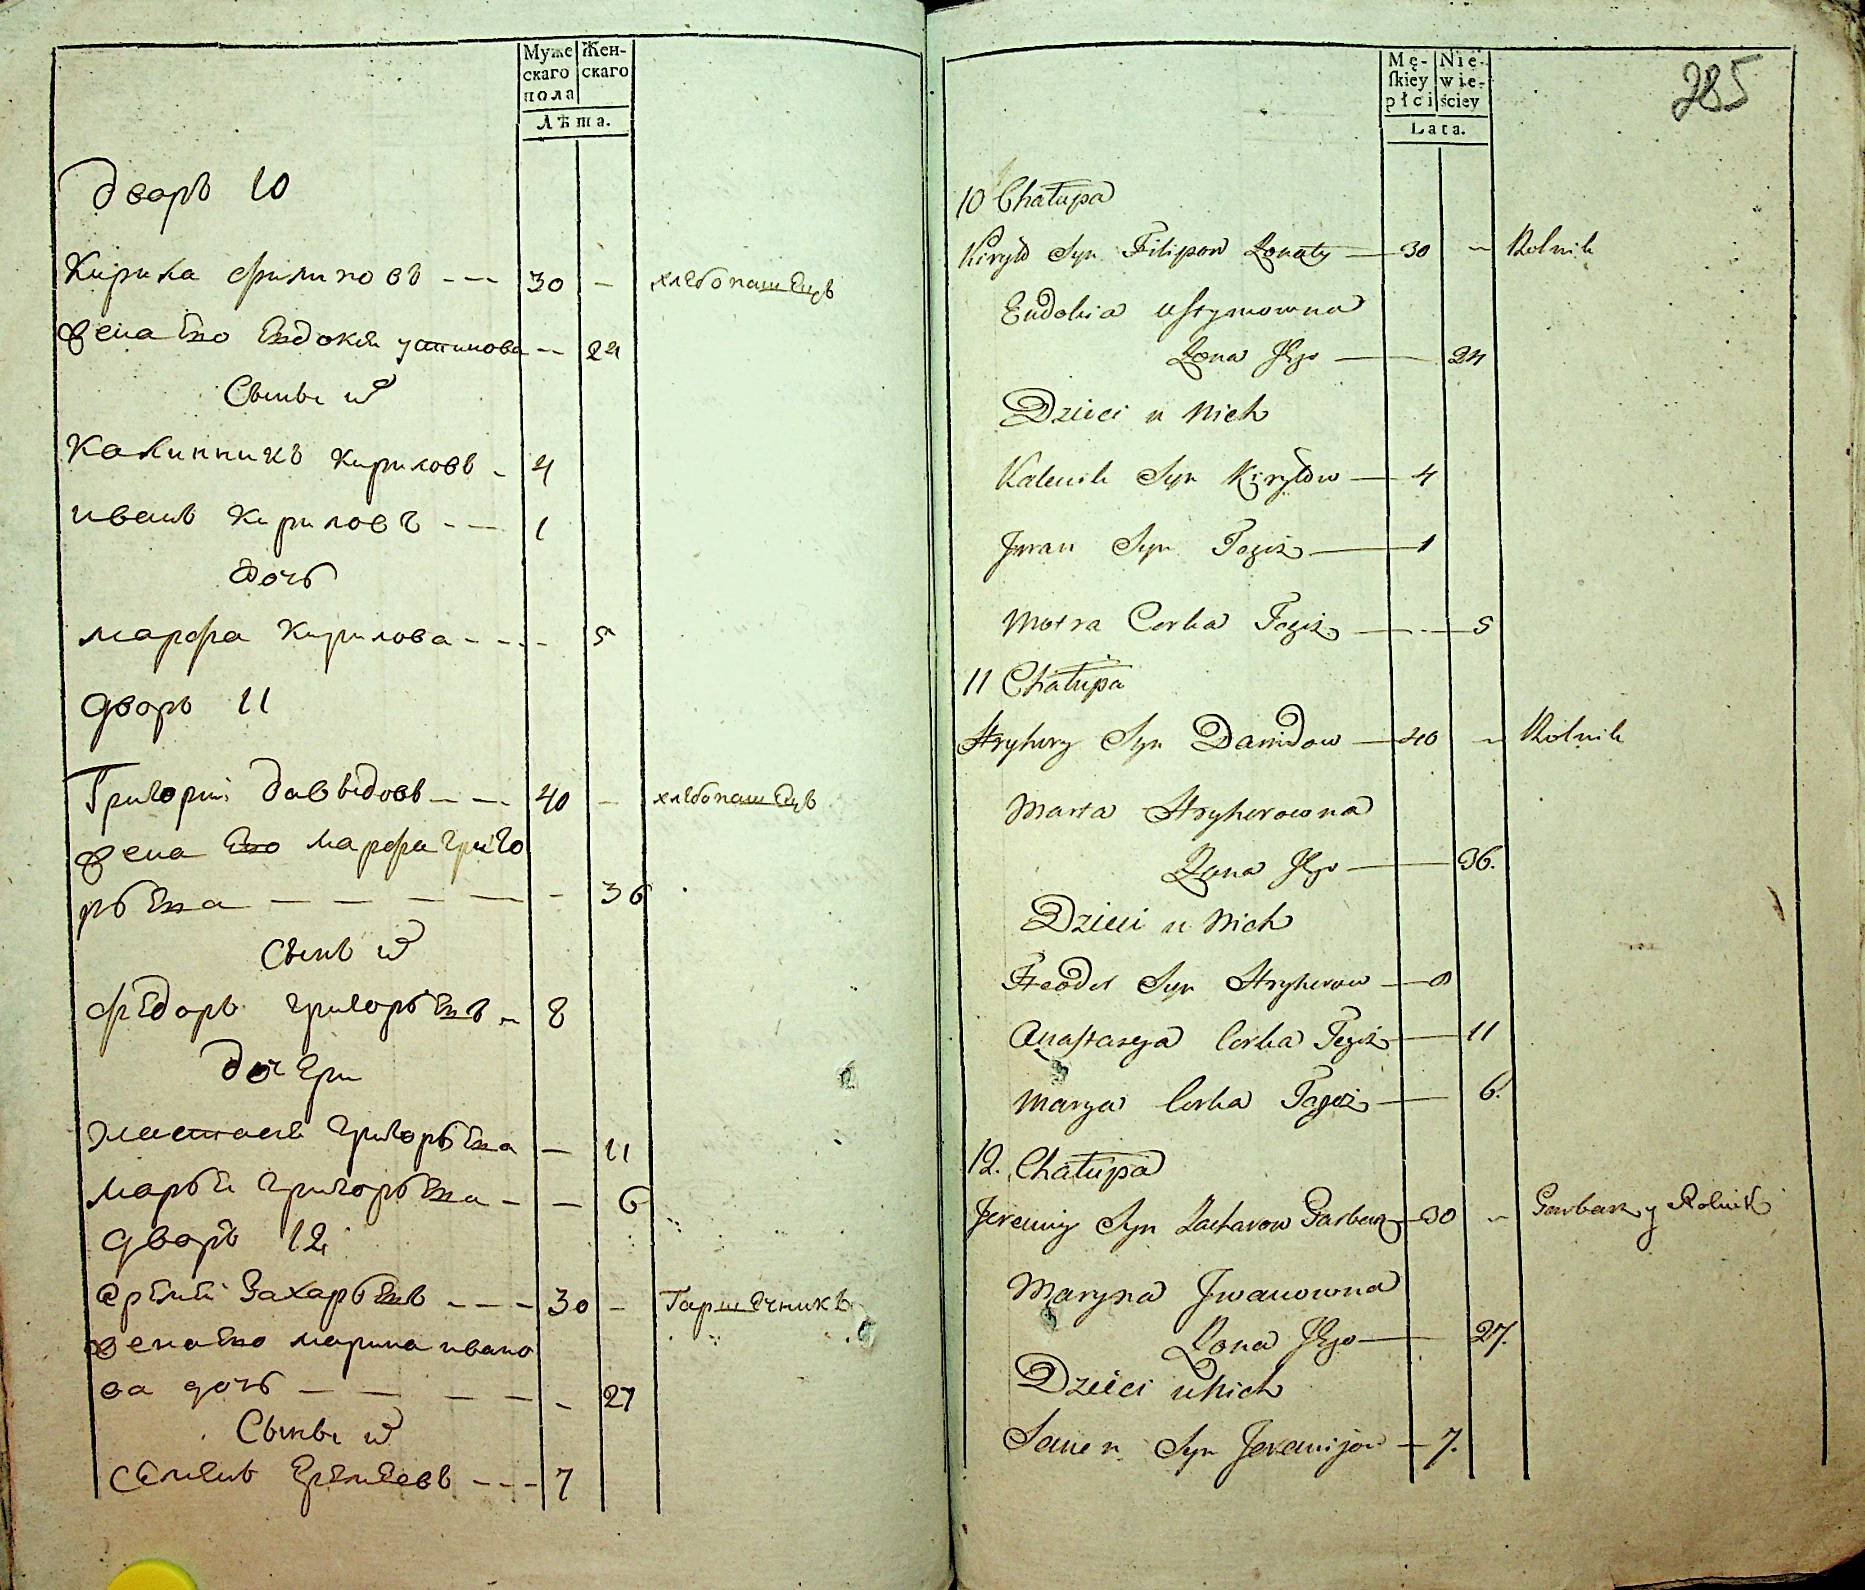 Муже Жен-
скаго скаго
пола
Лѣта.
дворъ 10
Кирила филиповъ --- 30 - хлебопашецъ
жена Ево Евдокея устинова -- 24
Сыны ихъ
Калинникъ Кириловъ - 4
иванъ Кириловъ --- 1
дочь
марфа Кирилова ---- 5
дворъ 11
Григорій давыдовъ --- 40 - хлебопашецъ
жена Ево марфа григо
рьева - - - - - 36
Сынъ ихъ
федоръ григорьевъ - 8
дочери
Григорьева - 11
марья григорьева - - 6
дворъ 12
еремей Захарьевъ ---- 30 - Гаршечникъ
жена Ево марина ивано
ва дочь - - - - - - 27
Сыны ихъ
семенъ Еремеевъ --- 7
285
Mę- Nie-
skiey wie-
płci ściey
Lata.
10 Chałupa
Kiryło Syn Filipow — 30 - Rolnik
Eudokia Ustymowna
Żona Jego — 24
Dzieci u Nich
Kalenik Syn Kiryłow — 4
Jwan Syn Tegiż — 1
Motra Corka Tegiż — 5
11 Chałupa
Hryhory Syn Dawidow — 40 - Rolnik
Marta Hryhorowna
Żona Jego — 36.
Dzieci u Nich
Fteodor Syn Hryhorow — 8
Anastazya Corka Tegiż — 11
Marya Corka Tegoż — 6.
12. Chałupa
Jeremiy Syn Zacharow Garbarz — 30 - Garbarz y Rolnik
Maryna Jwanowna
Żona Jego — 27.
Dzieci u Nich
Semen Syn Jeremijow — 7.